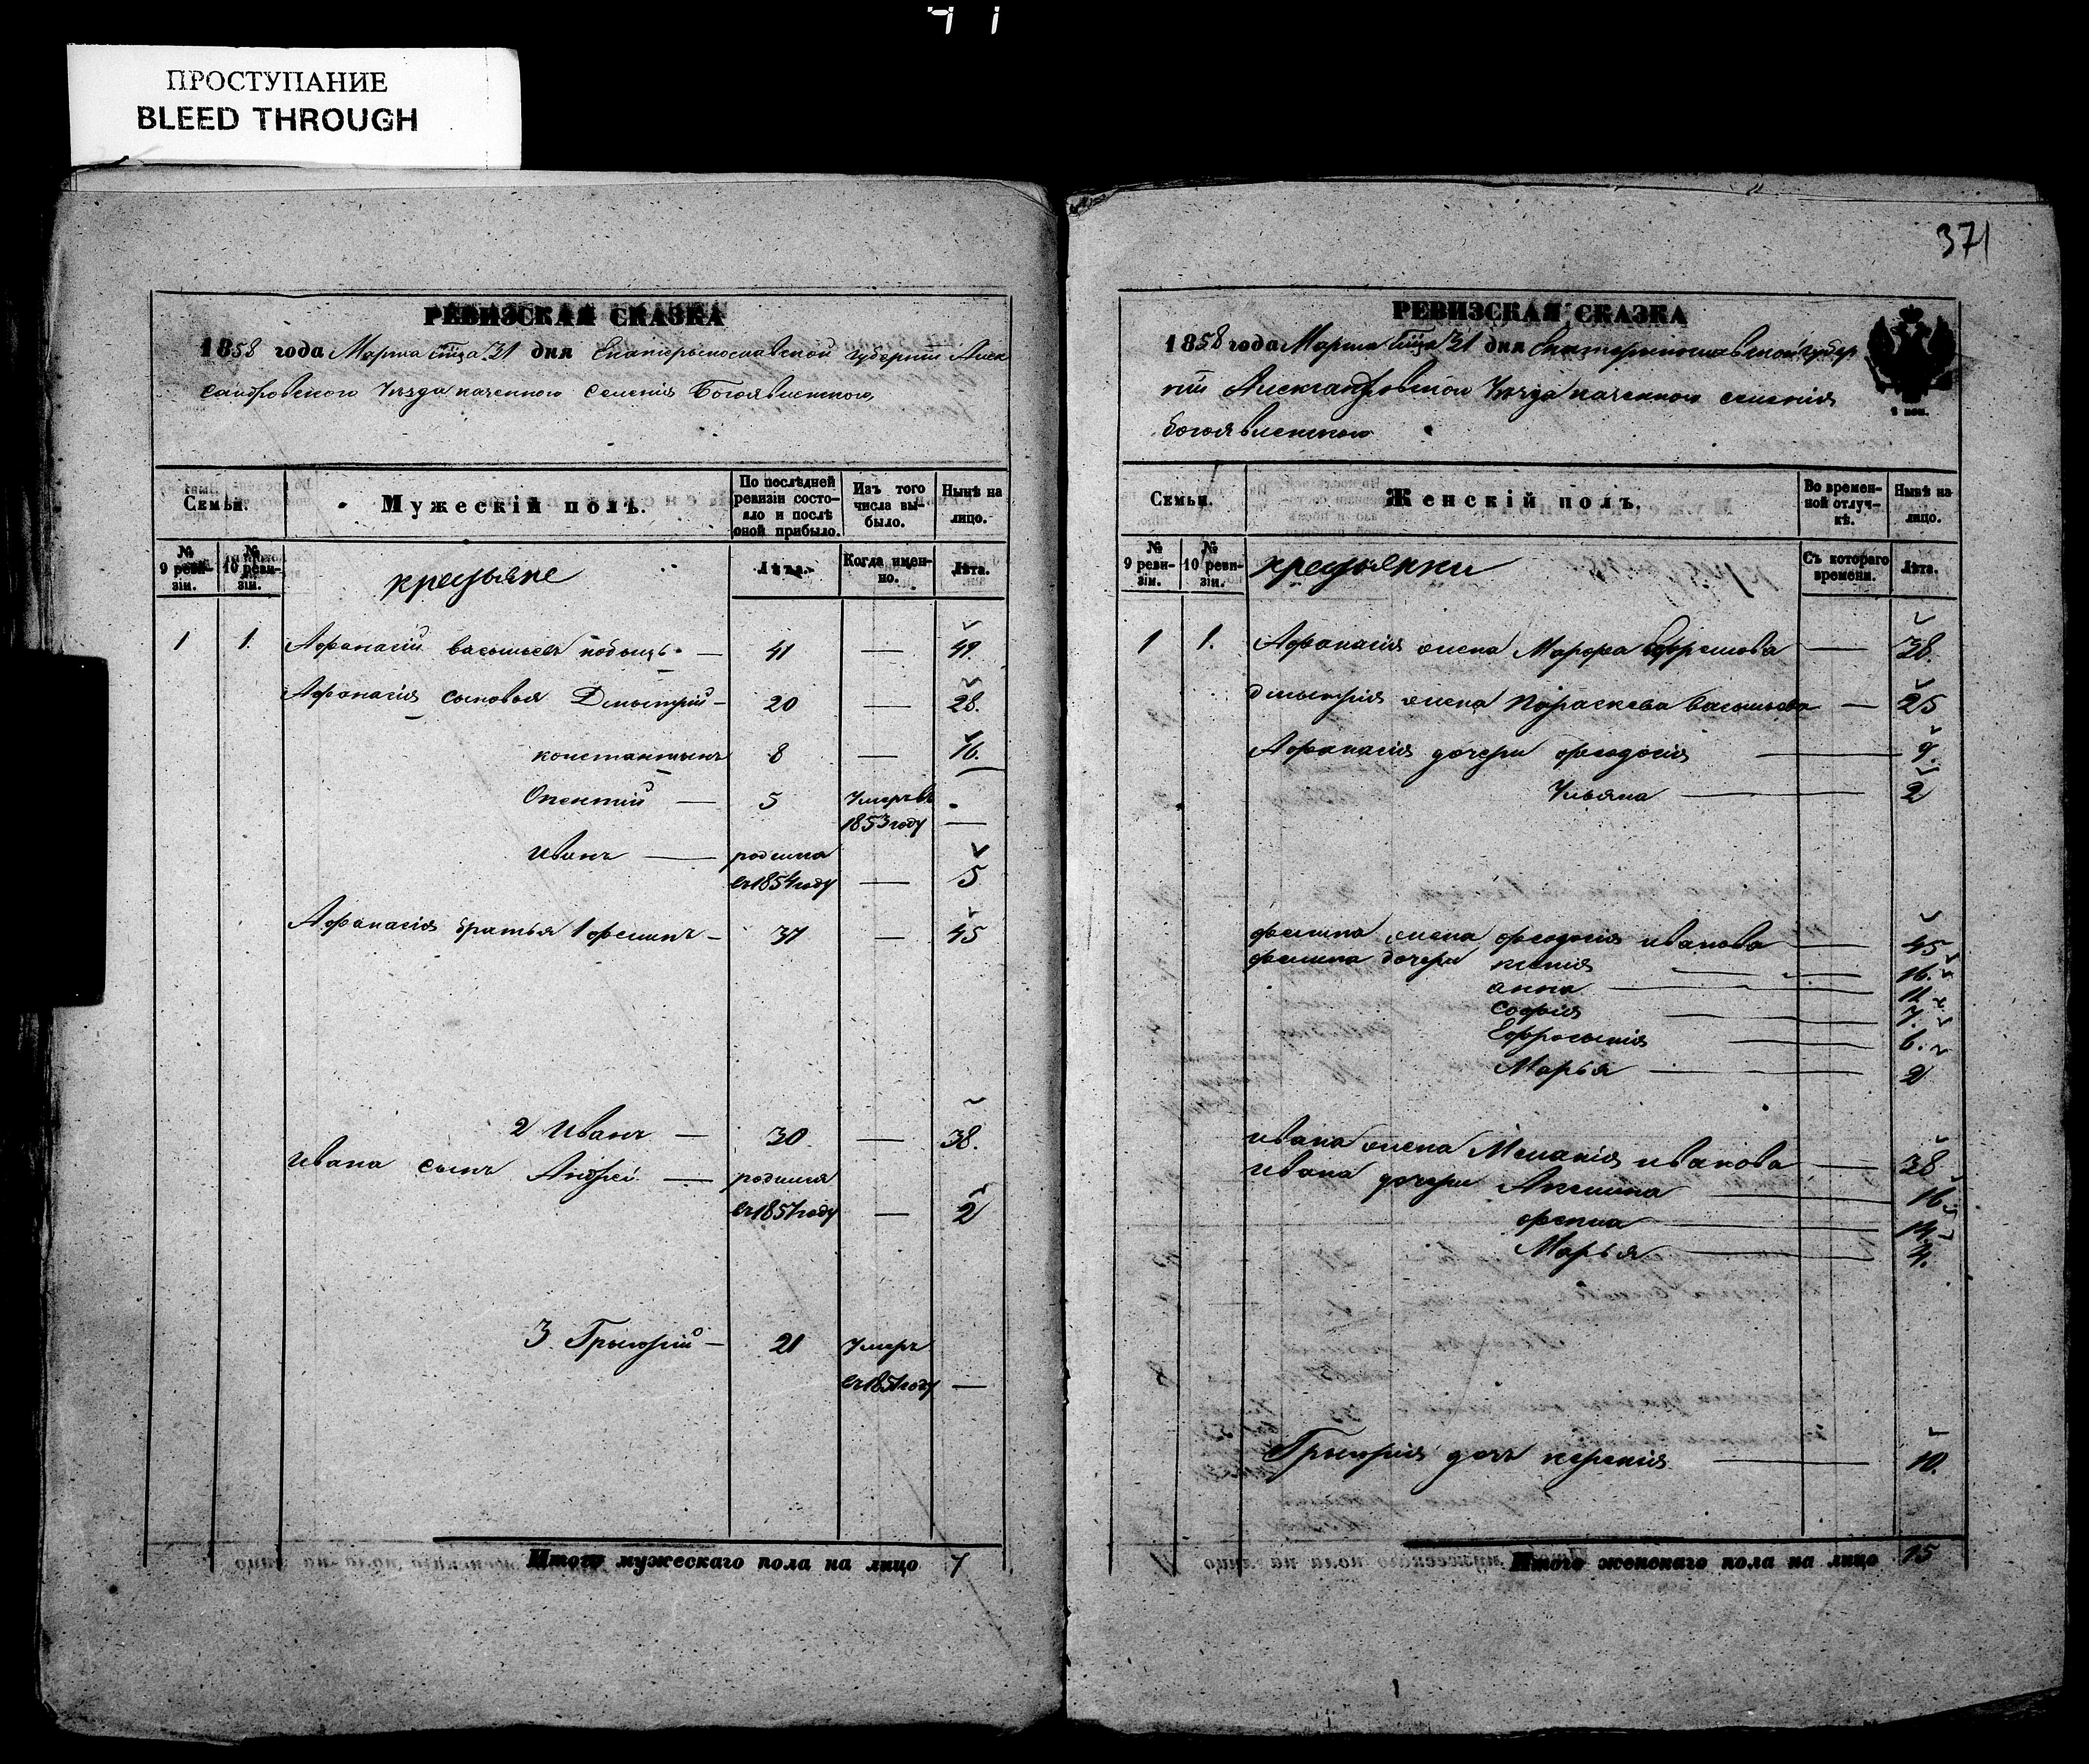 ПРОСТУПАНИЕ
BLEED THROUGH
371
РЕВИЗСКАЯ СКАЗКА
1858 года Марта 31 дня Екатерынославской губернии Алек
сандровского Уезда казенного селения Богоявленского
Семьи.
Мужескій полъ.
По послѣдней ревизіи состояло и послѣ оной прибыло.
Изъ того числа выбыло.
Нынѣ на лицо.
№ 9 ревизіи.
№ 10 ревизіи.
крестьяне
Лѣта.
Когда именно.
Лѣта.
1 1. Афанасий васыльевъ — 41 — 49.
Афанасия сыновья Дмытрий — 20 — 28.
константынъ 8 — 16.
— 5 Умеръ въ
1853 году —
Иванъ — родился
въ 1854 году — 5
Афанасия братья 1 филипъ — 37 — 45
2 Иванъ — 30 — 38.
Ивана сынъ Андрей — родился
въ 1857 году — 2
3. Грыгорий — 21 Умеръ
въ 1851 году —
Итого мужескаго пола на лицо 7
РЕВИЗСКАЯ СКАЗКА
1858 года Марта 31 дня Екатерынославской губер
нии Александровского Уезда казенного селения
Богоявленского
Семьи.
Женскій полъ.
Во временной отлучкѣ.
Нынѣ на лицо.
№ 9 ревизіи.
№ 10 ревизіи.
крестьянки
Съ котораго времени.
Лѣта.
1 1. Афанасия жена Марфа Ефремова — 38.
дмытрия жена Параскева васыльева — 25
Афанасия дочери феодосия — 9.
Ульяна — 2
филипа жена феодосия иванова — 45
филипа дочери ксения — 16.
анна — 11
София — 7.
Ефросыния — 6.
Марья — 2
ивана жена Мелания иванова — 38
ивана дочери Акилина — 16
— 14
Марья — 4.
Грыгория дочь — 10.
Итого женскаго пола на лицо 15